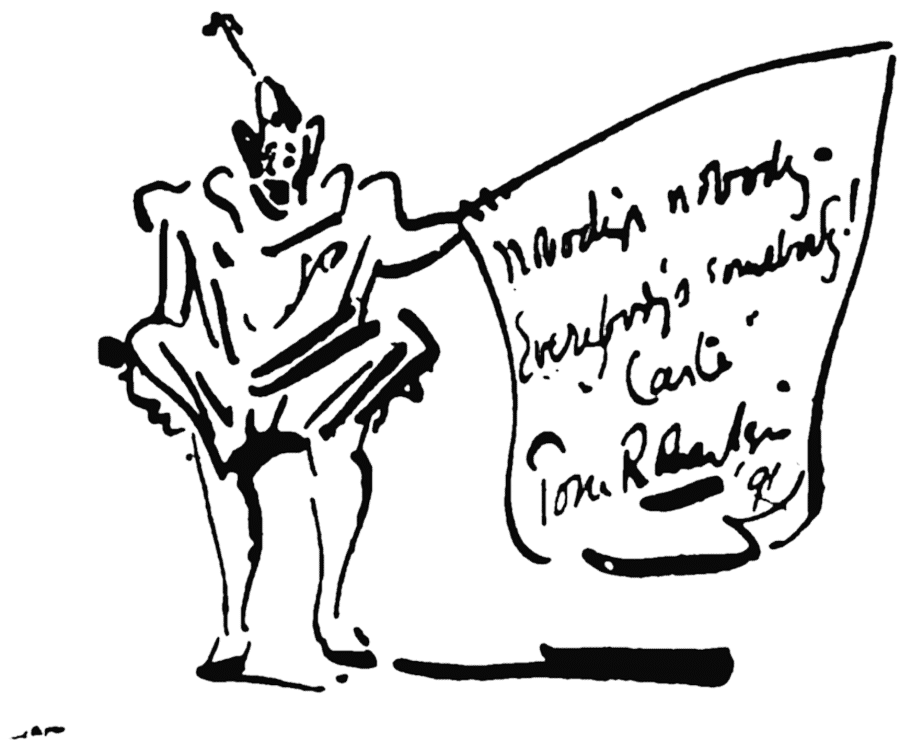 nobody's nobody.
Everybody's somebody!
"Caste"
Tom R
'91